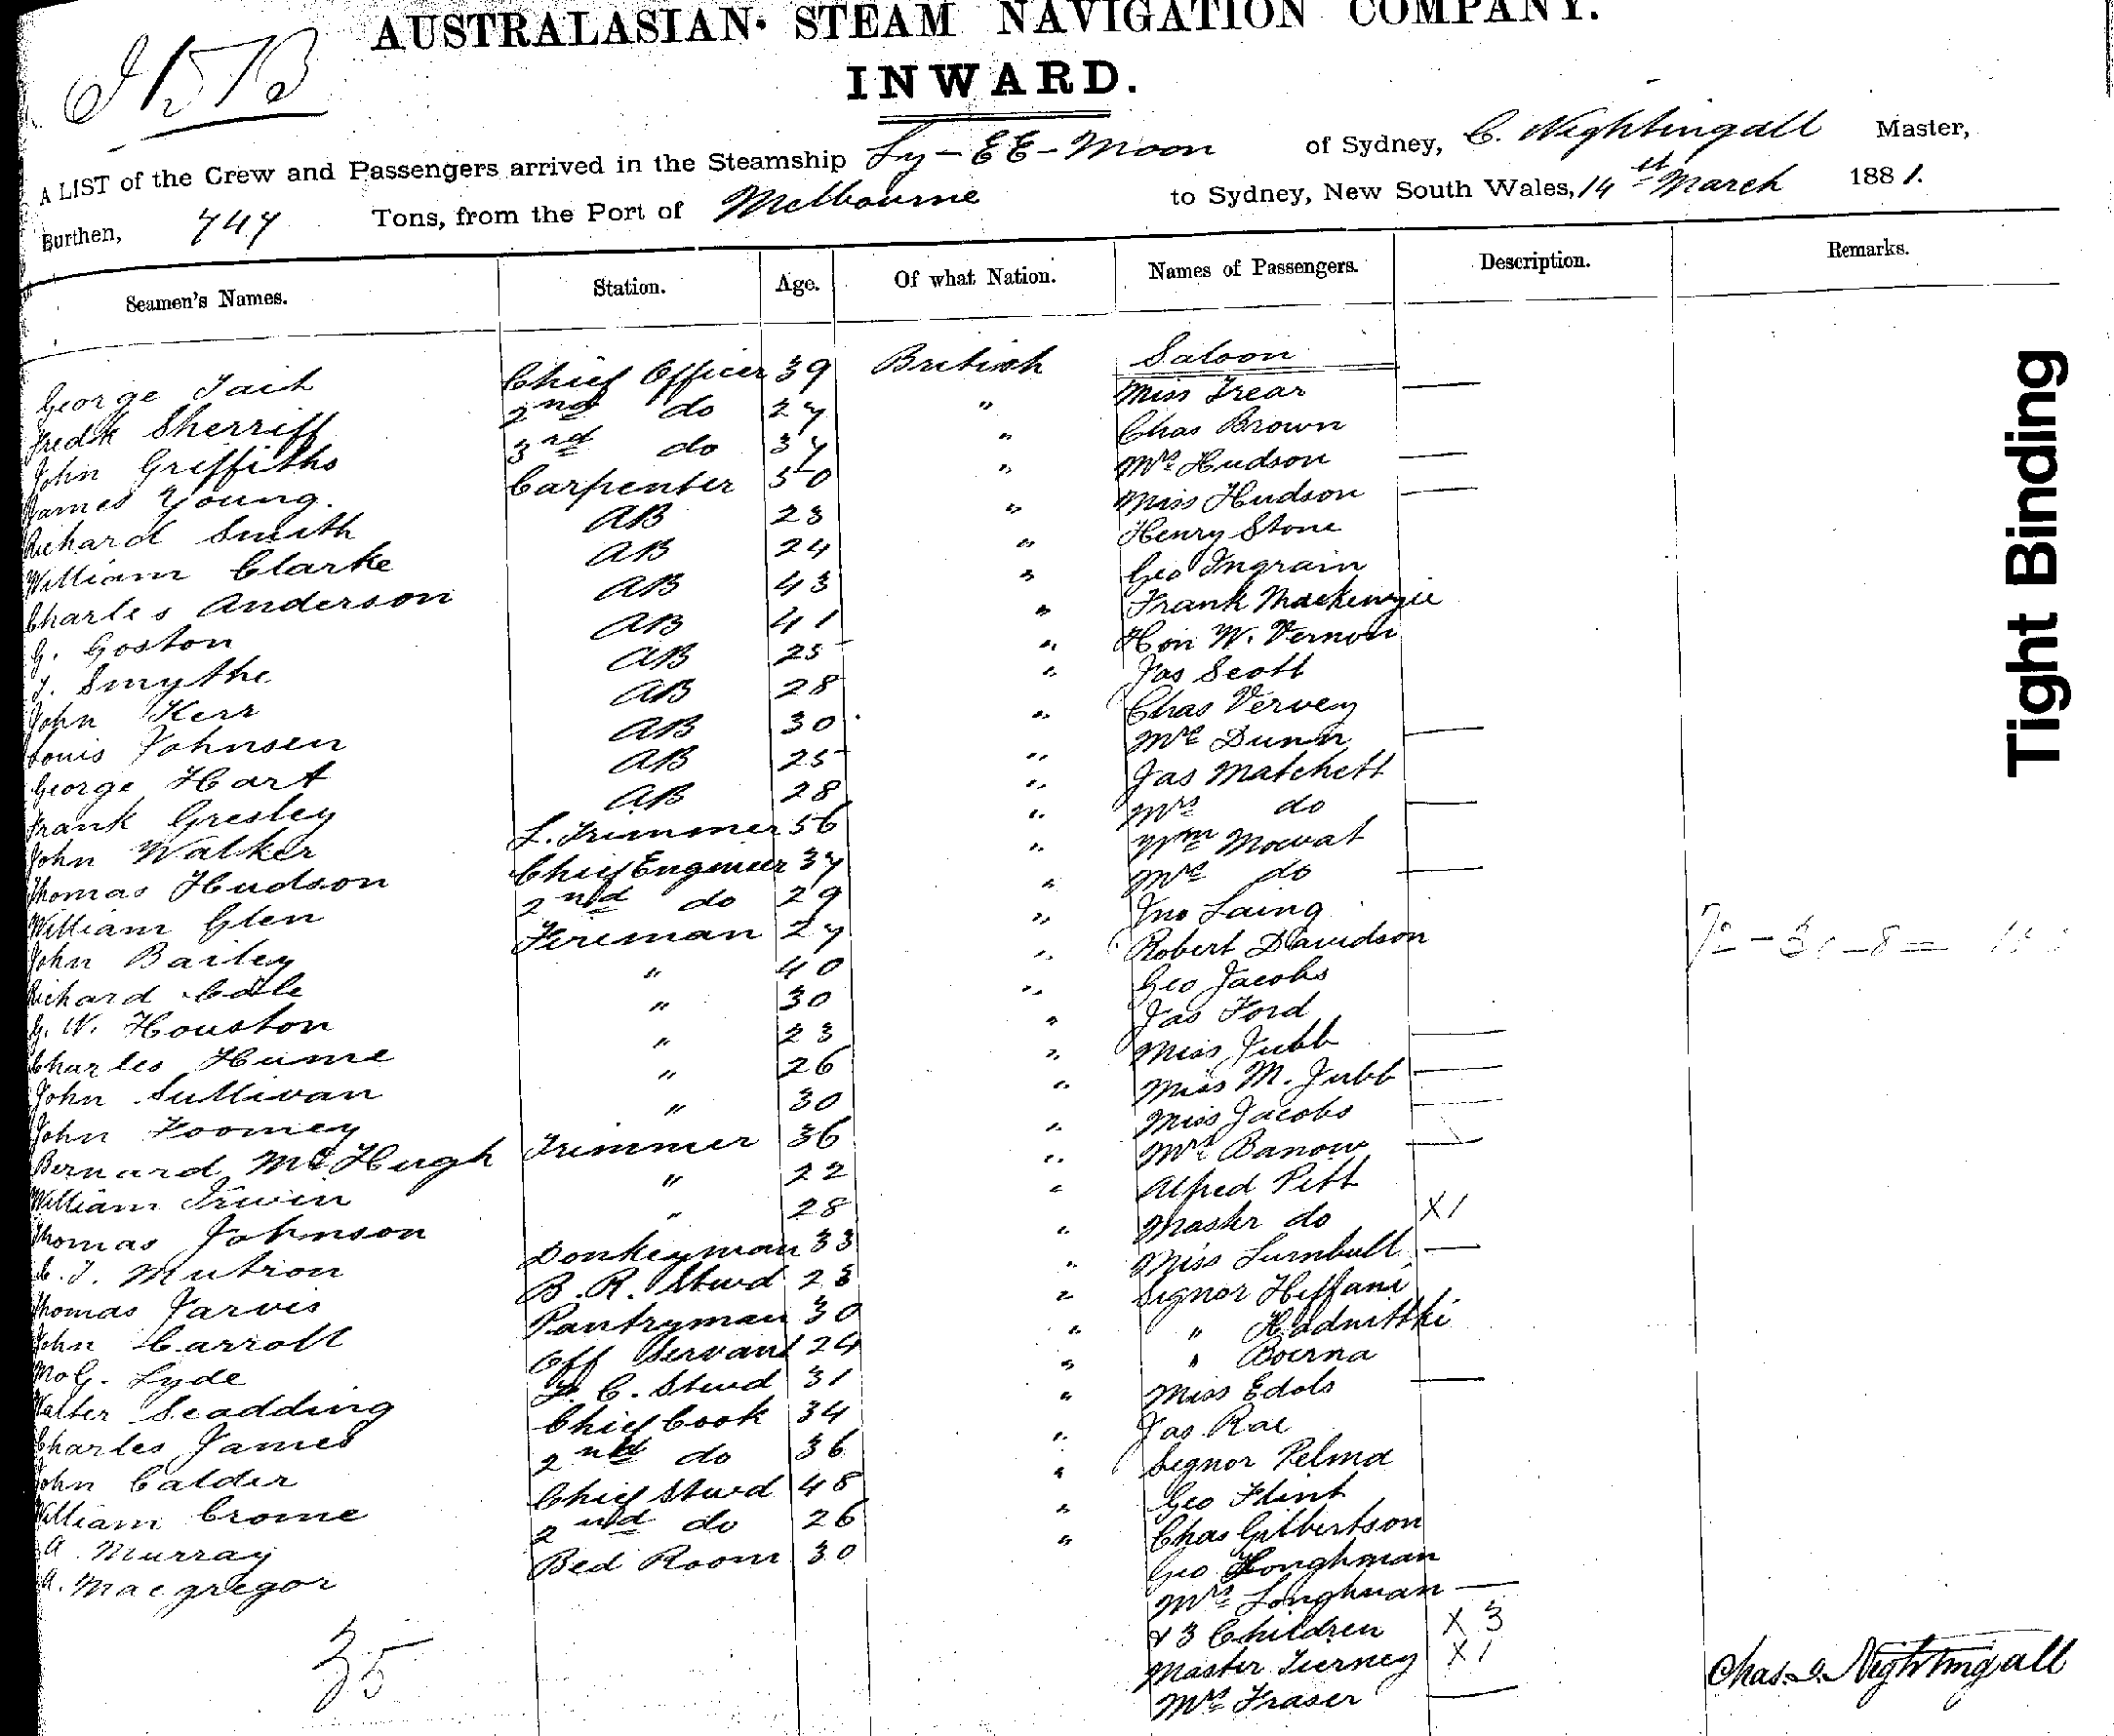 AUSTRALASIAN STEAM NAVIGATION COMPANY.
INWARD.
A LIST of the Crew and Passengers arrived in the Steamship Ly-EE-Moon of Sydney, C. Nightingall Master,
Burthen, 747 Tons, from the Port of Melbourne to Sydney, New South Wales, 14th March 1881.
Seamen's Names. Station. Age. Of what Nation. Names of Passengers. Description. Remarks.
Saloon
George Tait Chief Officer 39 British Miss Frear —
Fredk Sherriff 2nd do 27 " Chas Brown
John Griffiths 3rd do 37 " Mrs Hudson —
James Young. Carpenter 50 " Miss Hudson —
Richard Smith AB 23 " Henry Stone
William Clarke AB 24 " Geo Ingrain
Charles Anderson AB 43 " Frank Mackenzie
G. Goston AB 41 " Hon W. Vernon
J. Smythe AB 25 " Jas Scott
John Kerr AB 28 " Chas Vervey
Louis Johnsen AB 30 " Mrs Dunn —
George Hart AB 25 " Jas Matchett
Frank Gresley AB 28 " Mrs do —
John Walker L. Trimmer 56 " Wm Mowat
Thomas Hudson Chief Engineer 37 " Mrs do —
William Glen 2nd do 29 " Jno Laing
John Bailey Fireman 27 " Robert Davidson
Richard Cole " 40 " Geo Jacobs
G. W. Houston " 30 " Jas Ford
Charles Hume " 23 " Miss Jubb —
John Sullivan " 26 " Miss M. Jubb —
John Toomey " 30 " Miss Jacobs —
Bernard McHugh Trimmer 36 " Mrs Banow —
William Irwin " 22 " Alfred Pitt
Thomas Johnson " 28 " Master do X1
C. J. Mutron Donkeyman 33 " Miss Turnbull —
Thomas Jarvis B. R. Stwd 23 " Signor Heffani
John Carroll Pantryman 30 " " Hadnittki
McG. Lyde Off Servant 24 " " Boerna
Walter Scadding F. C. Stwd 31 " Miss Edols —
Charles James Chief Cook 34 " Jas Rae
John Calder 2nd do 36 " Signor Pelma
William Crome Chief Stwd 48 " Geo Flint
A. Murray 2nd do 26 " Chas Gilbertson
A. Macgregor Bed Room 30 Geo Longhman
Mrs Longhman —
& 3 Children X 3
Master Tierney X1
Mrs Fraser —
35
Chas. J. Nightingall
Tight Binding